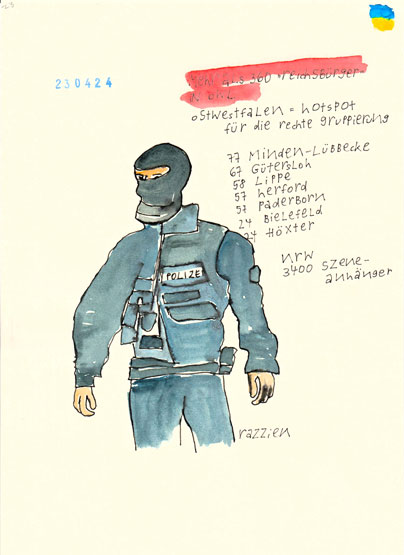 230424
Mehr als 360 »reichsbürger«
in OWL
ostwestfalen = hotspot
für die rechte gruppierung
77 Minden-Lübbecke
67 Gütersloh
58 Lippe
57 herford
57 paderborn
24 Bielefeld
24 Höxter
nrw
3400 szene-
anhänger
POLIZEI
razzien